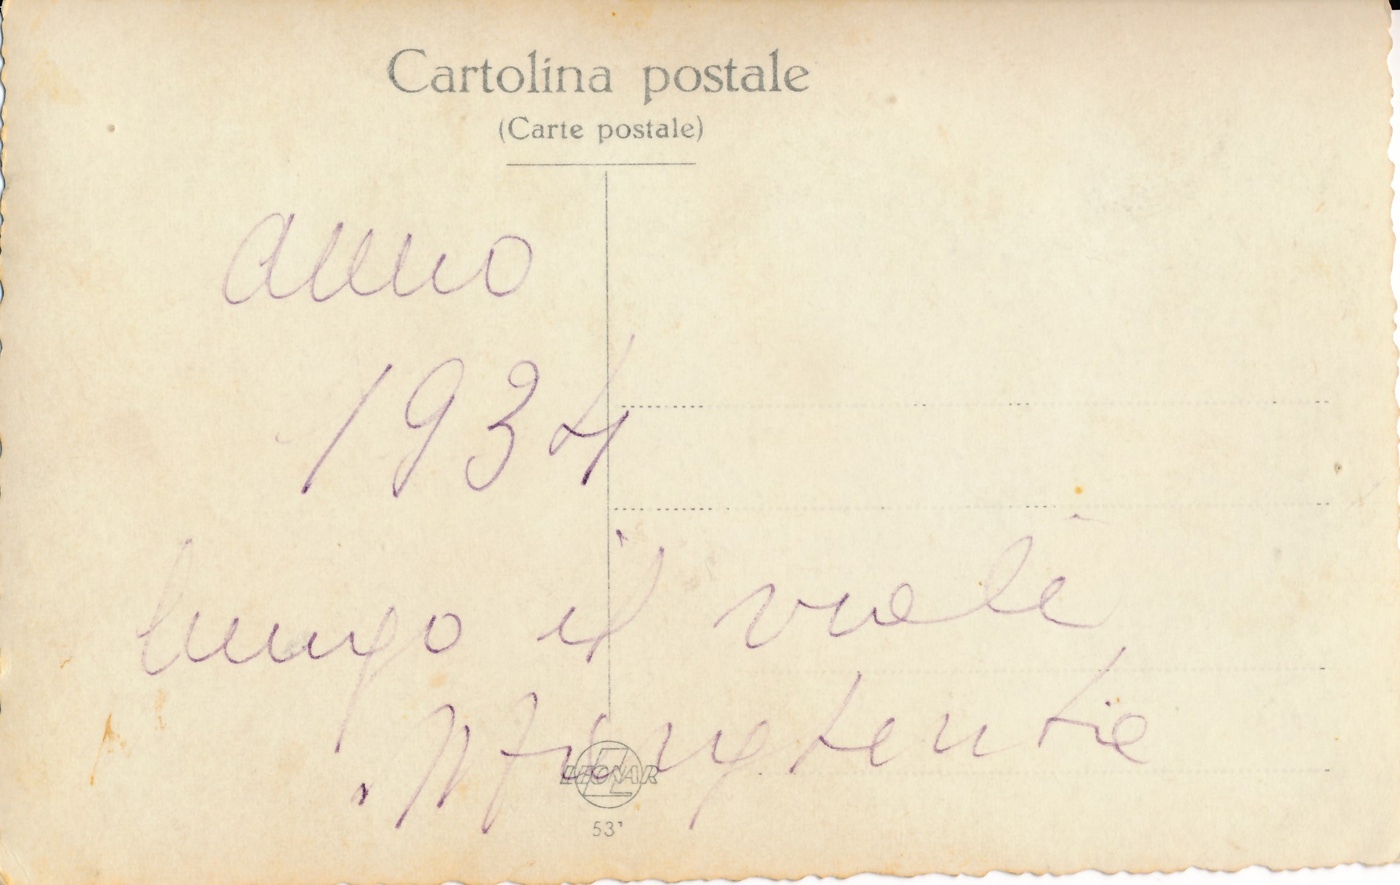 Cartolina postale
(Carte postale)
anno
1934
lungo il viale
LEONAR
53